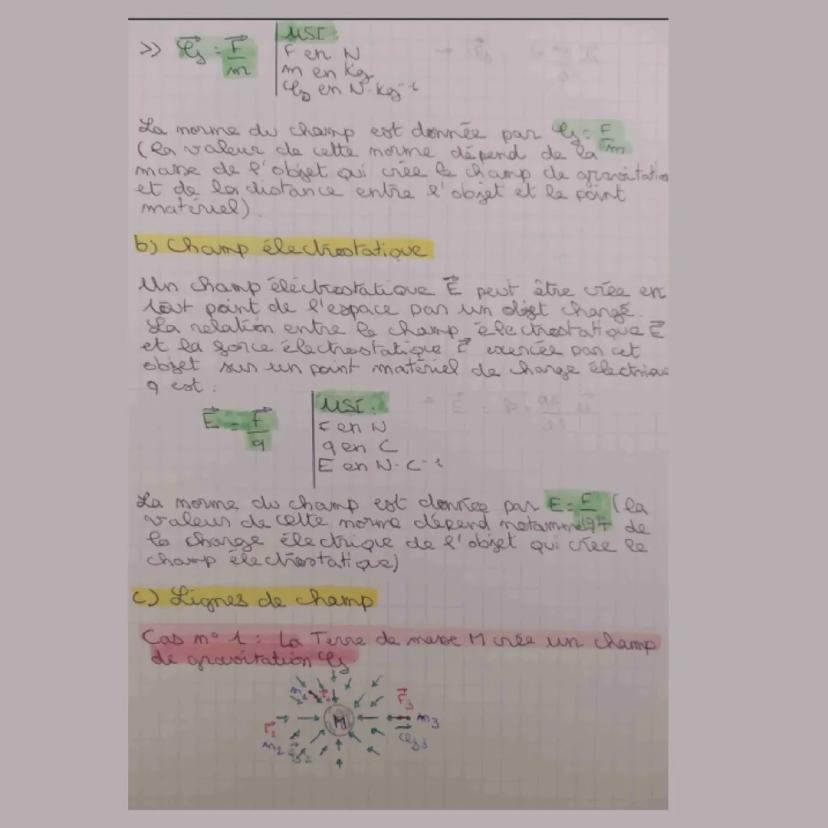 >> 𝒢 = F/m
USI
F en N
m en kg
𝒢 en N·kg⁻¹
La norme du champ est donnée par 𝒢 = F/m
(la valeur de cette norme dépend de la
masse de l'objet qui crée le champ de gravitation
et de la distance entre l'objet et le point
matériel).
b) Champ électrostatique
Un champ éléctrostatique E⃗ peut être crée en
tout point de l'espace par un objet chargé.
La relation entre le champ électrostatique E⃗
et la force électrostatique F⃗ exercée par cet
objet sur un point matériel de charge électrique
q est :
E⃗ = F⃗/q
USI :
F en N
q en C
E en N·C⁻¹
La norme du champ est donnée par E = F/q (la
valeur de cette norme dépend notamment de
la charge électrique de l'objet qui crée le
champ électrostatique)
c) Lignes de champ
Cas n° 1 : La Terre de masse M crée un champ
de gravitation 𝒢
F⃗₃
M
m₃
F⃗₂
m₂